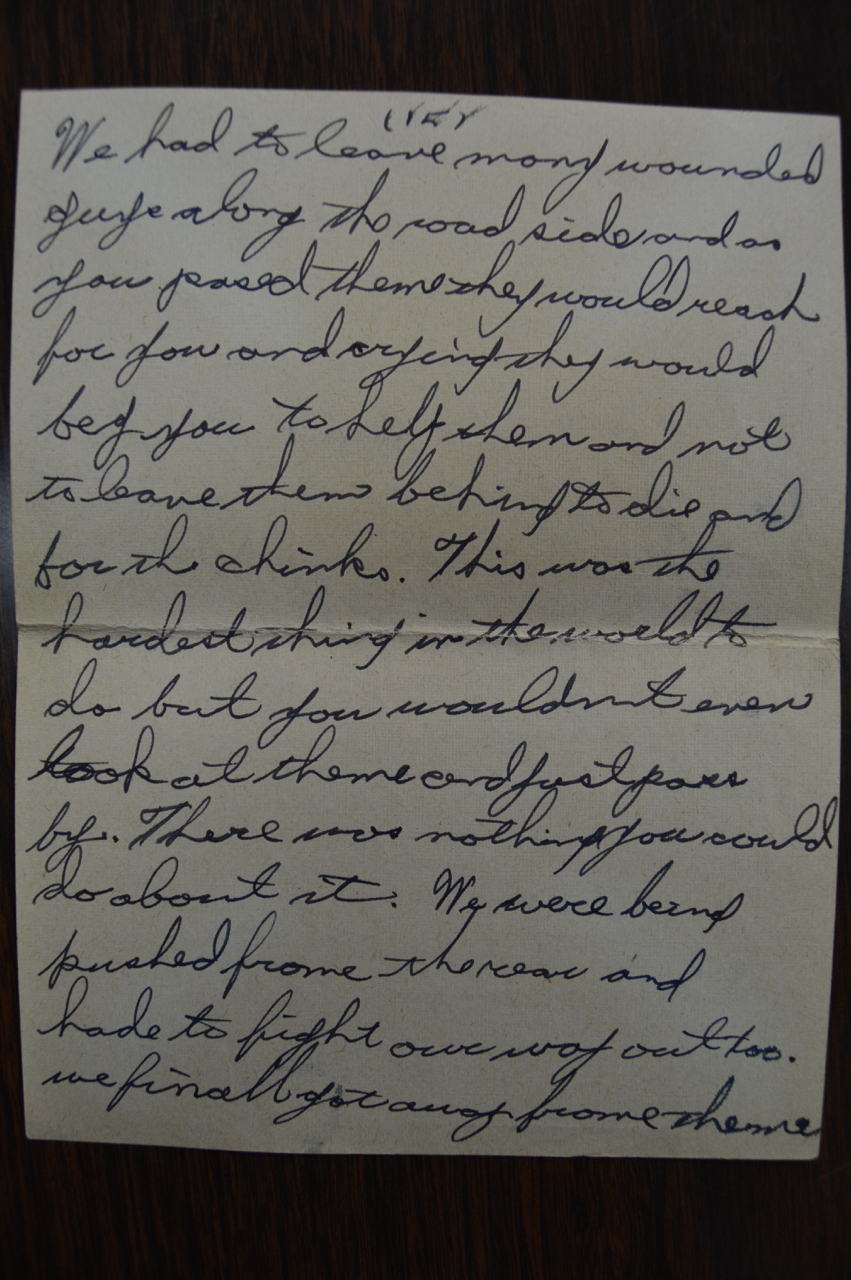 We had to leave many wounded
guys along the road side and as
you pased theme they would reach
for you and crying they would
beg you to help them and not
to leave them behind to die and
for the chinks. This was the
hardest thing in the world to
do but you wouldnt even
look at theme and just pass
by. There was nothing you could
do about it. We were being
pushed frome the rear and
hade to fight our way out too.
we finall got away frome theme